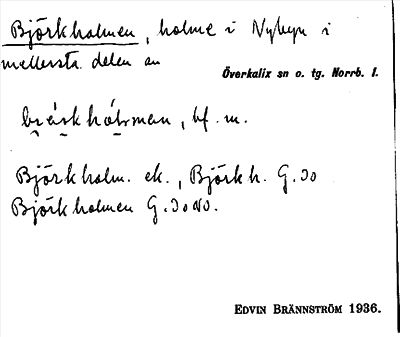 Björkholmen, holme i Nybyn i
mellersta delen av
Överkalix sn o. tg. Norrb. l.
bf. m.
Björkholm. ek., Björkh. G. 30
Björkholmen G. 30 NO.
EDVIN BRÄNNSTRÖM 1936.